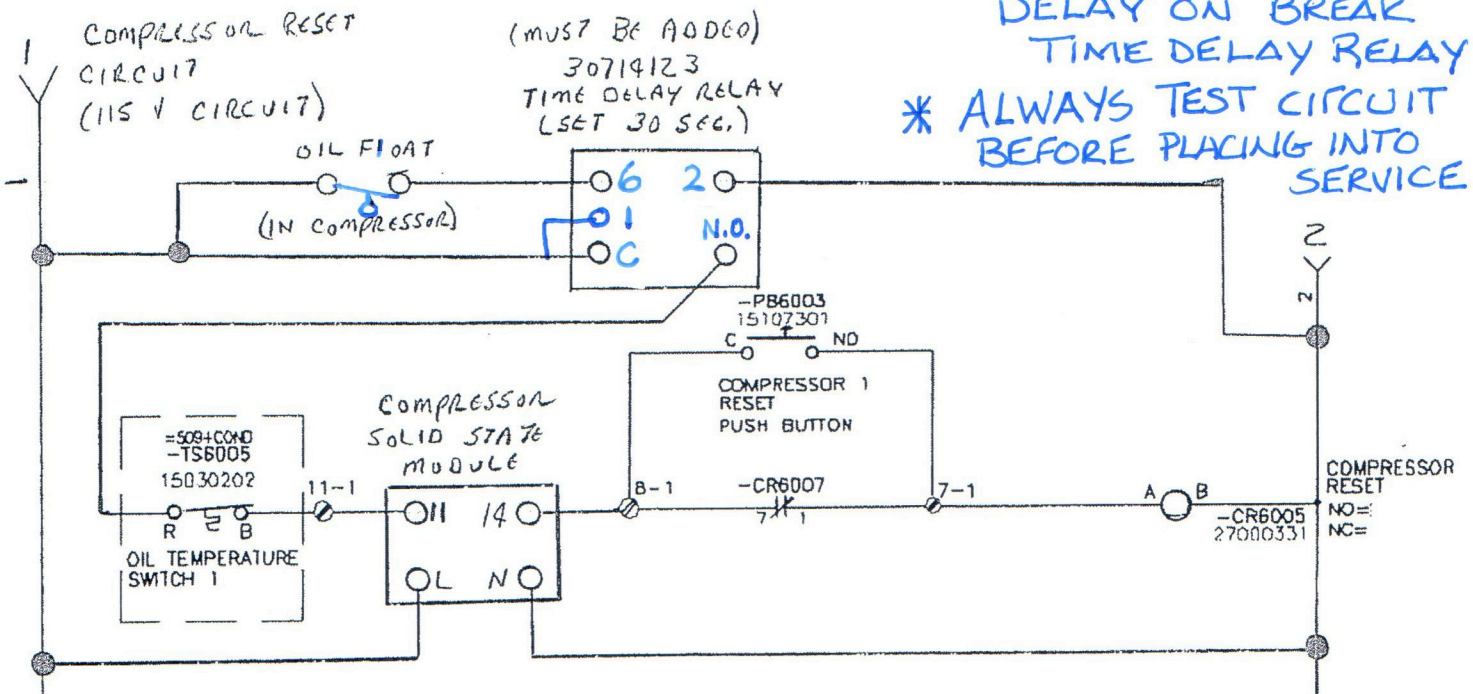 1
COMPRESSOR RESET
CIRCUIT
(115 V CIRCUIT)
(MUST BE ADDED)
30714123
TIME DELAY RELAY
(SET 30 SEC.)
DELAY ON BREAK
TIME DELAY RELAY
* ALWAYS TEST CIRCUIT
BEFORE PLACING INTO
SERVICE
1
OIL FLOAT
(IN COMPRESSOR)
6 2
1 N.O.
C
2
2
-PB6003
15107301
C NO
COMPRESSOR 1
RESET
PUSH BUTTON
COMPRESSOR
SOLID STATE
MODULE
=S09+COND
-TS6005
15030202
R B
OIL TEMPERATURE
SWITCH 1
11-1
11 14
L N
8-1
-CR6007
7 1
7-1
A B
-CR6005
27000331
COMPRESSOR
RESET
NO=
NC=